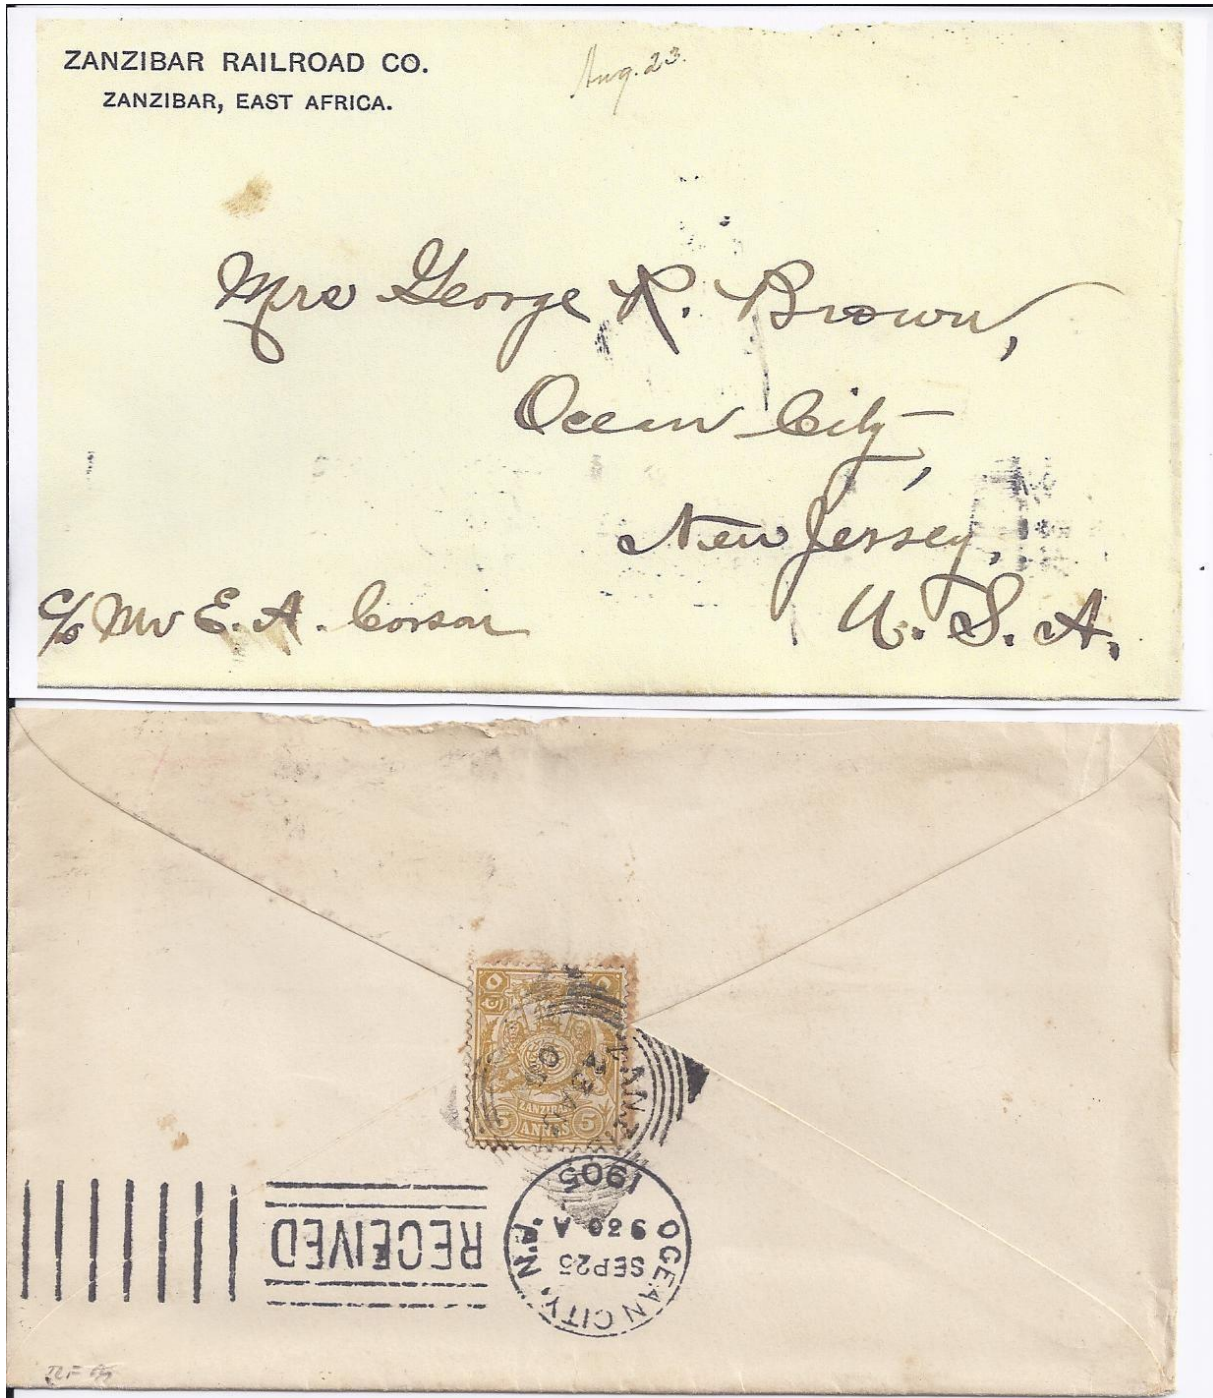 ZANZIBAR RAILROAD CO.
ZANZIBAR, EAST AFRICA.
Aug. 23.
Mrs George R. Brown,
Ocean City,
New Jersey,
U. S. A.
c/o Mr E. A. Corson
٥
ZANZIBAR
5 ANNAS 5
RECEIVED
OCEAN CITY, N.J.
SEP 25
9 30 A
1905